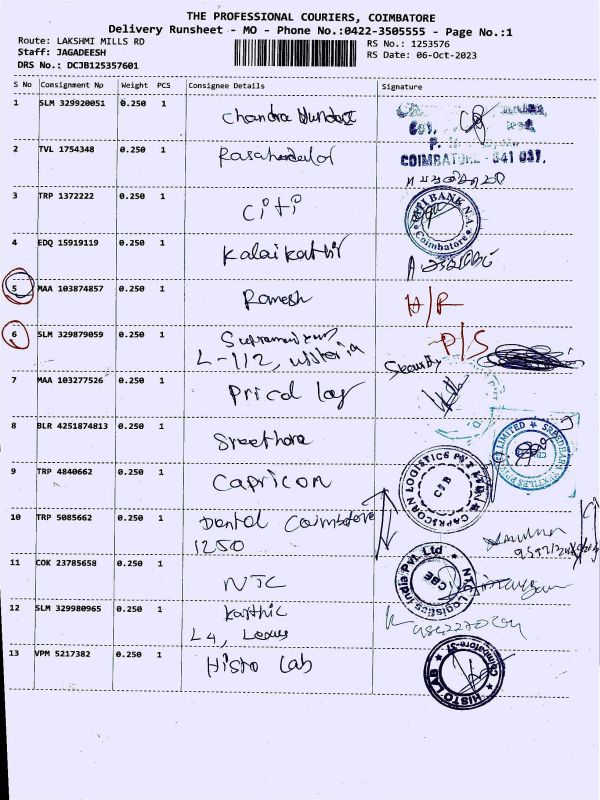 THE PROFESSIONAL COURIERS, COIMBATORE
Delivery Runsheet - MO - Phone No.:0422-3505555 - Page No.:1
Route: LAKSHMI MILLS RD
Staff: JAGADEESH
DRS No.: DCJB125357601
RS No.: 1253576
RS Date: 06-Oct-2023
S No Consignment Np Weight PCS Consignee Details Signature
1 SLM 329920051 0.250 1 Chandra
COIMBATORE - 641 037.
2 TVL 1754348 0.250 1
3 TRP 1372222 0.250 1 Citi
CITI BANK N.A. Coimbatore
4 EDQ 15919119 0.250 1 Kalaikathir
5 MAA 103874857 0.250 1 Ramesh H/R
6 SLM 329879059 0.250 1 P/S
L-112,
Security
7 MAA 103277526 0.250 1 Pricol log
8 BLR 4251874813 0.250 1 Sreethara
LIMITED
9 TRP 4840662 0.250 1 Capricon
CAPRICORN LOGISTICS PVT
CJB
10 TRP 5085662 0.250 1 Dental Coimbatore
1250
11 COK 23785658 0.250 1 NTC
NTC Logistics India Pvt. Ltd
CBE
12 SLM 329980965 0.250 1 Karthic
L4, Lexus
13 VPM 5217382 0.250 1 Histo Lab
HISTO LAB Coimbatore-37